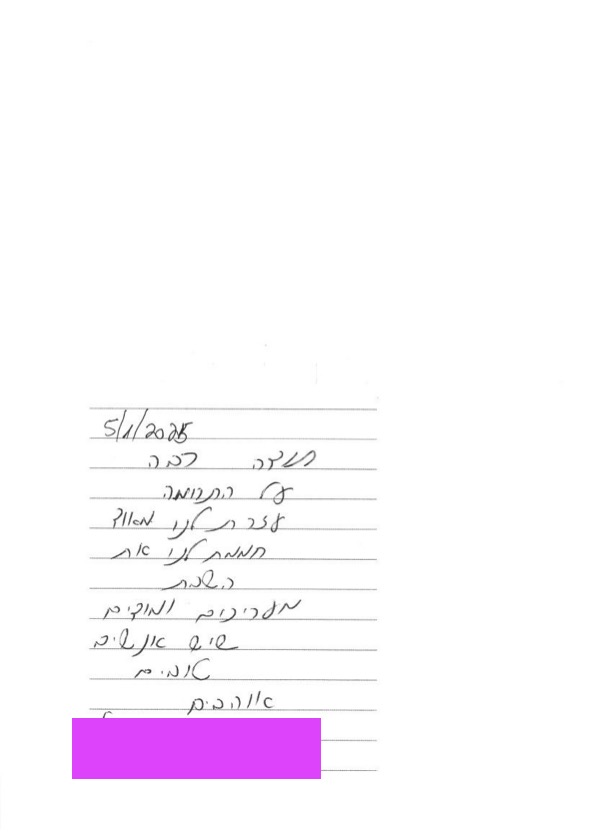 5/1/2025
תודה רבה
על התרומה
עזרת לנו מאוד
חממת לנו את
השבת
מעריכים ומודים
שיש אנשים
טובים
אוהבים